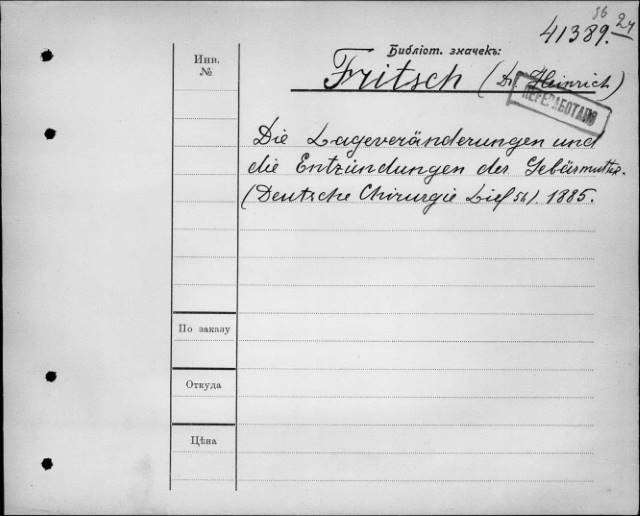 56
41389. 24
Библіот. значекъ:
Инв.
№
Fritsch (Dr Heinrich)
ПЕРЕРАБОТАНО
Die Lageveränderungen und
die Entzündungen der Gebärmutter.
(Deutsche Chirurgie Lief 56). 1885.
По заказу
Откуда
Цѣна